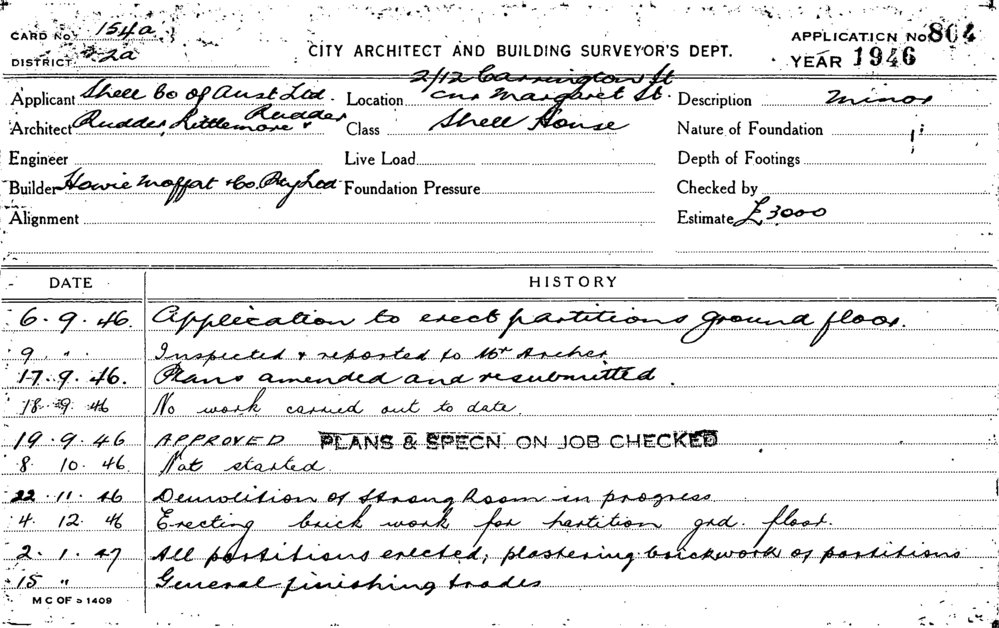 CARD No. 154a
DISTRICT. 2a
CITY ARCHITECT AND BUILDING SURVEYOR'S DEPT.
APPLICATION No. 804
YEAR 1946
Applicant Shell Co of Aust Ltd.
Location 2/12 Carrington St
cnr Margaret St.
Description minor
Architect Rudder, Littlemore & Rudder
Class Shell House
Nature of Foundation
Engineer
Live Load
Depth of Footings
Builder Howie Moffat & Co. Pty Ltd
Foundation Pressure
Checked by
Alignment
Estimate £3000
DATE HISTORY
6. 9. 46. Application to erect partitions ground floor.
9 " Inspected & reported to Mr Archer.
17. 9. 46. Plans amended and resubmitted.
18. 9. 46 No work carried out to date.
19. 9. 46 APPROVED PLANS & SPECN. ON JOB CHECKED
8. 10. 46. Not started.
22. 11. 46 Demolition of Strong Room in progress
4. 12. 46 Erecting brick work for partition grd. floor.
2. 1. 47 All partitions erected, plastering brickwork of partitions
15 " General finishing trades
M C OF S 1409